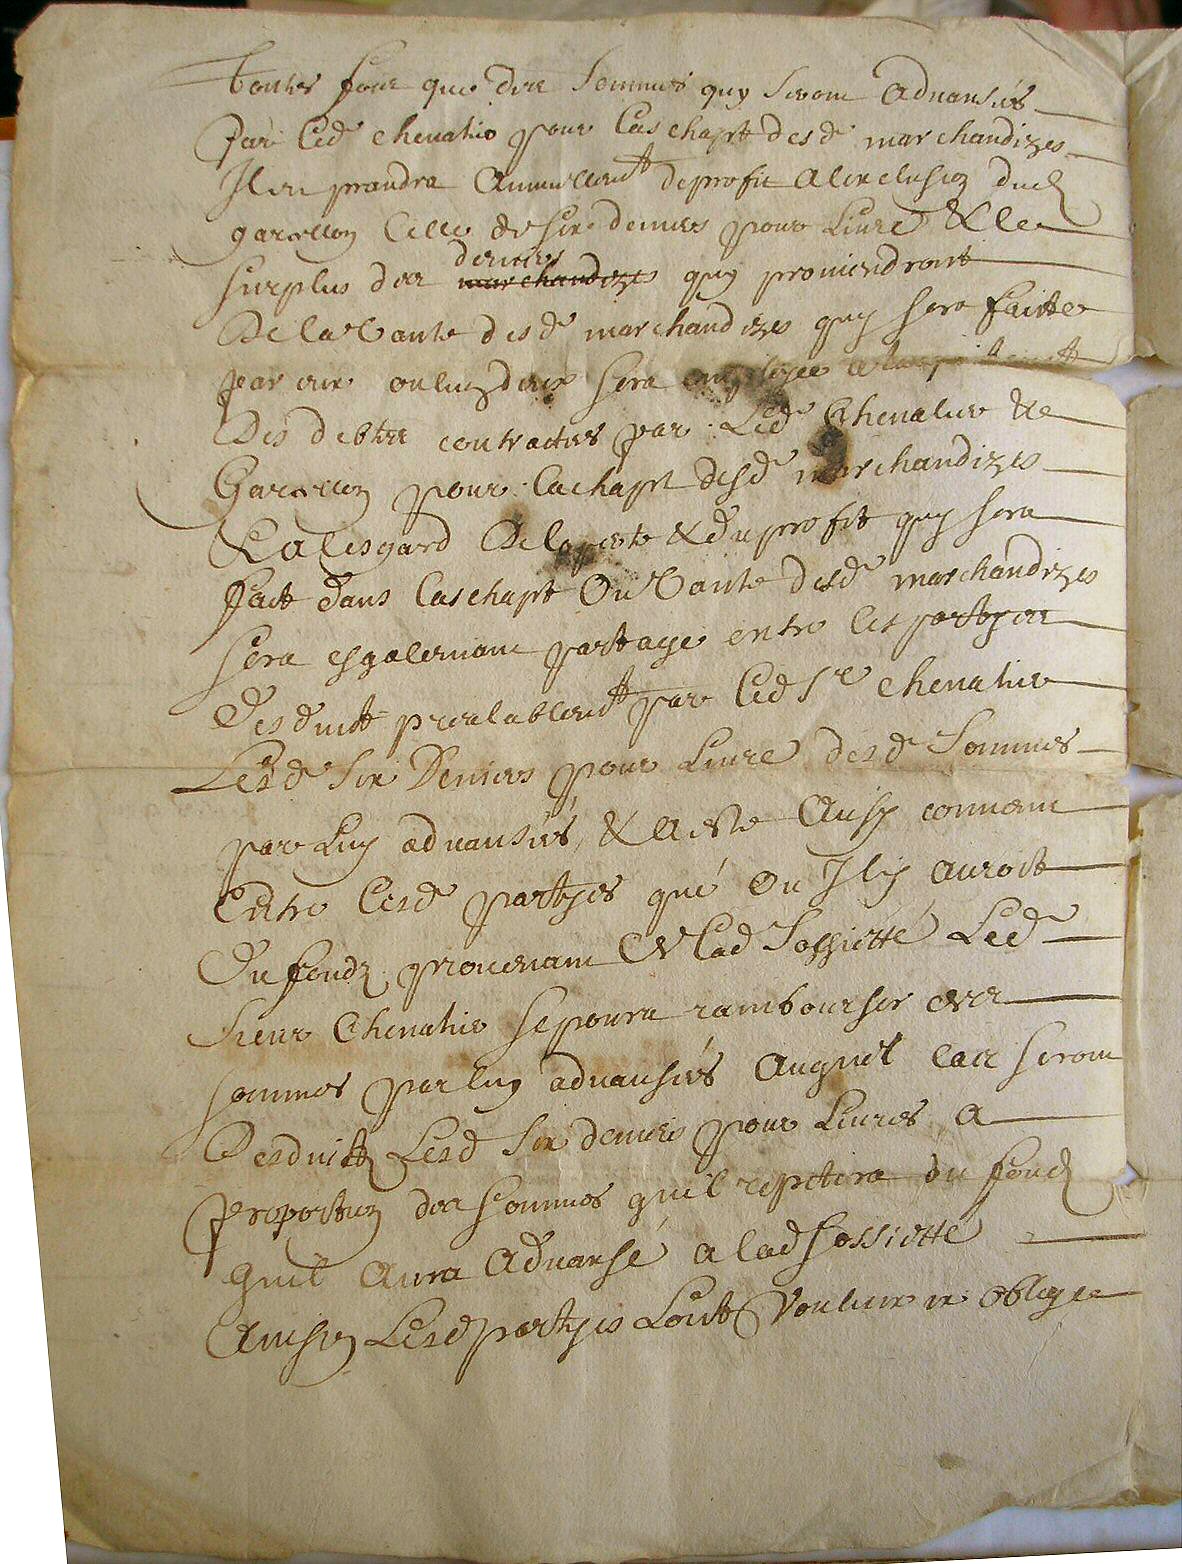 touttes fois que des sommes quy seront advansées
par led chevalier pour l'aschapt desd marchandizes
Il en prandra annuellemt de profit a l'exclusion dud
garrellon celle de six deniers pour livre & le
surplus des deniers marchandizes quy proviendront
de la vante desd marchandizes quy sera faitte
par eux ou lung deux sera employée
des debtes contractés par led chevalier & le
Garrellon pour l'achapt desd marchandizes
& a l'esgard de la perte & du profit quy sera
fait dans l'aschapt ou vante desd marchandizes
sera esgalemant partagé entre les partyes
desduitt prealablemt par led Sr chevalier
Lesd six deniers pour livre desd sommes
par luy advansées, & a esté ausy convenu
entre lesd partyes que ou Il y auroit
du fondz provenant de lad Sossietté Led
sieur chevalier se poura rambourser des
sommes par luy advansées auquel cas seront
desduitz Lesd six deniers pour livres a
proportion des sommes quil repetera du fond
quil aura advansé a lad sossietté
Ainsin Lesd partyes L'ont voulleu et obligee